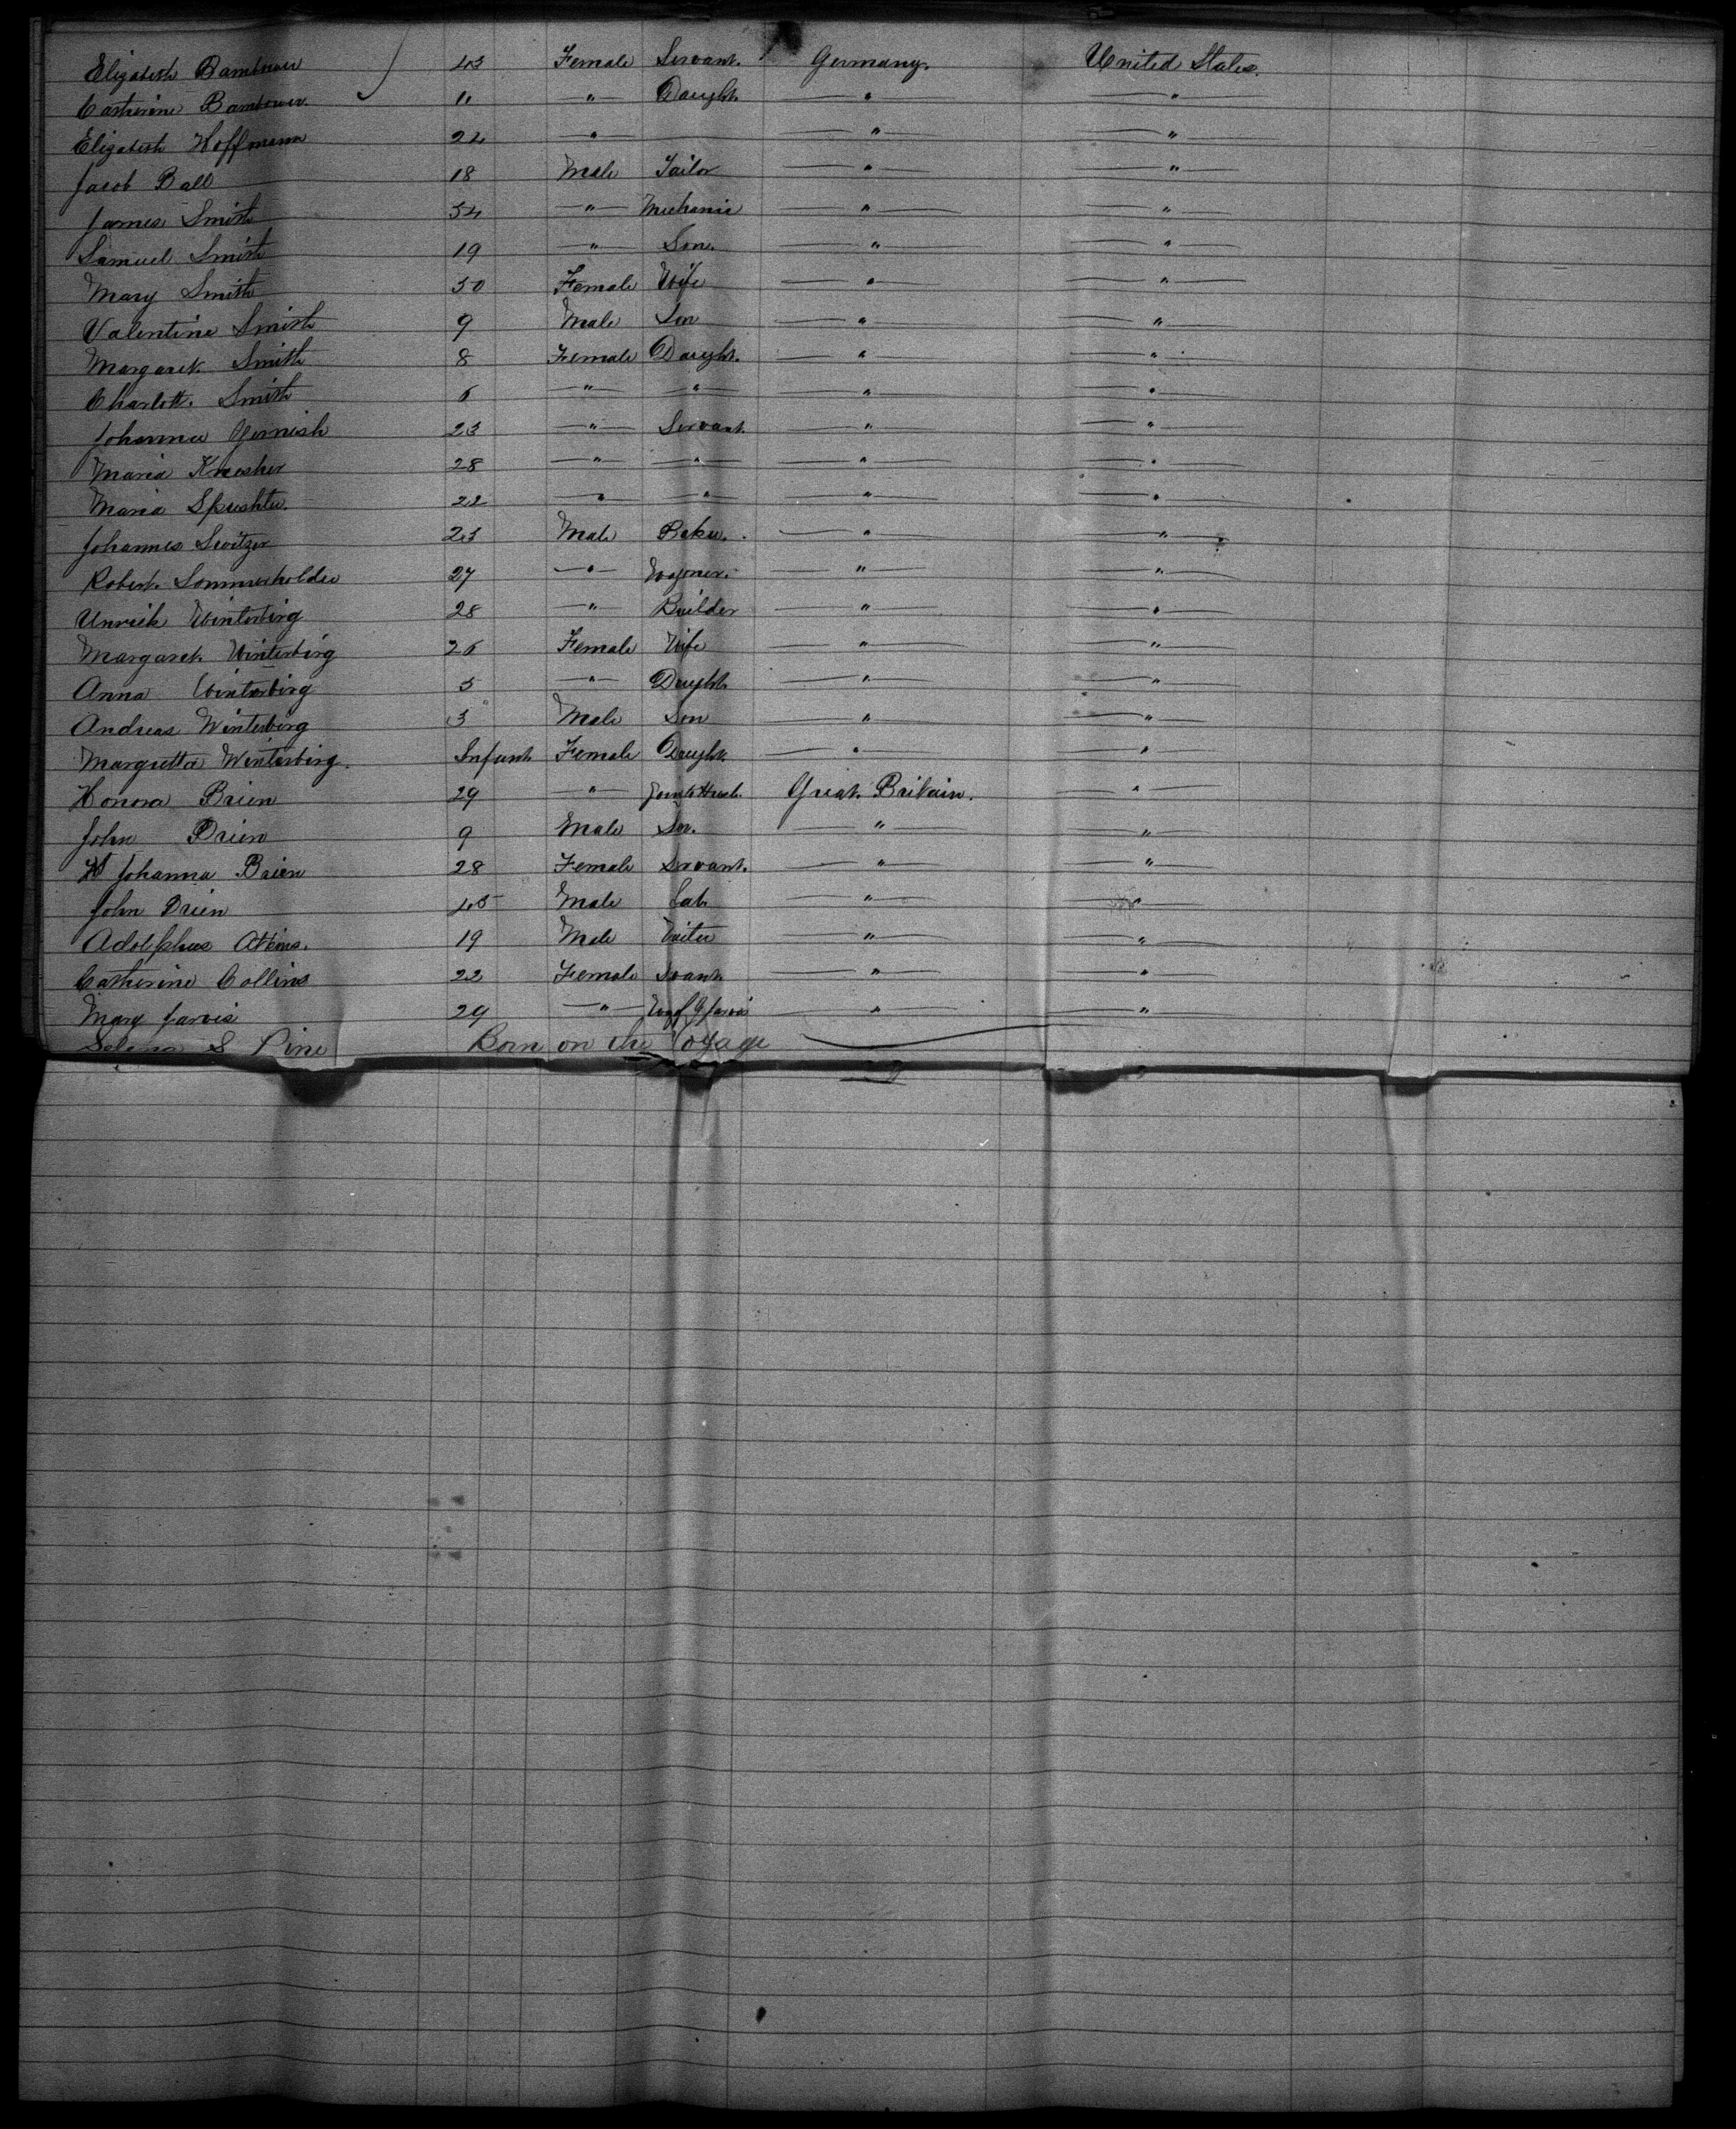 Elizabeth Bambower 43 Female Servant. Germany. United States.
Catherine Bambower. 11 " Daught. " "
Elizabeth Hoffmann 24 " " "
Jacob Ball 18 Male Tailor " "
James Smith 54 " Mechanic " "
Samuel Smith 19 " Son. " "
Mary Smith 50 Female Wife " "
Valentine Smith 9 Male Son " "
Margaret Smith 8 Female Daught. " "
Charlott. Smith 6 " " " "
Johanna 23 " Servant. " "
Maria 28 " " " "
Maria 22 " " " "
Johannes Switzer 23 Male Baker. " "
Robert. Sommerholder 27 " Wagoner. " "
Unrich Winterbirg 28 " Builder " "
Margaret. Winterbirg 26 Female Wife " "
Anna Winterbirg 5 " Daught. " "
Andreas Winterbirg 3 Male Son " "
Margretta Winterbirg. Infant Female Daught. " "
Honora Brien 29 " Great. Britain. "
John Brien 9 Male Son. " "
Johanna Brien 28 Female Servant. " "
John Brien 45 Male Lab. " "
Adolphus Atkins. 19 Male " "
Catherine Collins 22 Female Svant. " "
Mary Jarvis 29 " Jarvis " "
S Pine Born on the Voyage